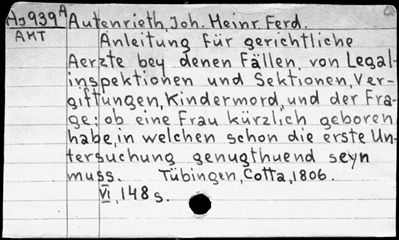 Aj939A Autenrieth, Joh. Heinr. Ferd.
AKT Anleitung für gerichtliche
Aerzte bey denen Fällen von Legal-
inspektionen und Sektionen, Ver-
giftungen, Kindermord, und der Fra-
ge: ob eine Frau kürzlich geboren
habe, in welchen schon die erste Un-
tersuchung genugthuend seyn
muss. Tübingen, Cotta, 1806.
VI, 148 s.